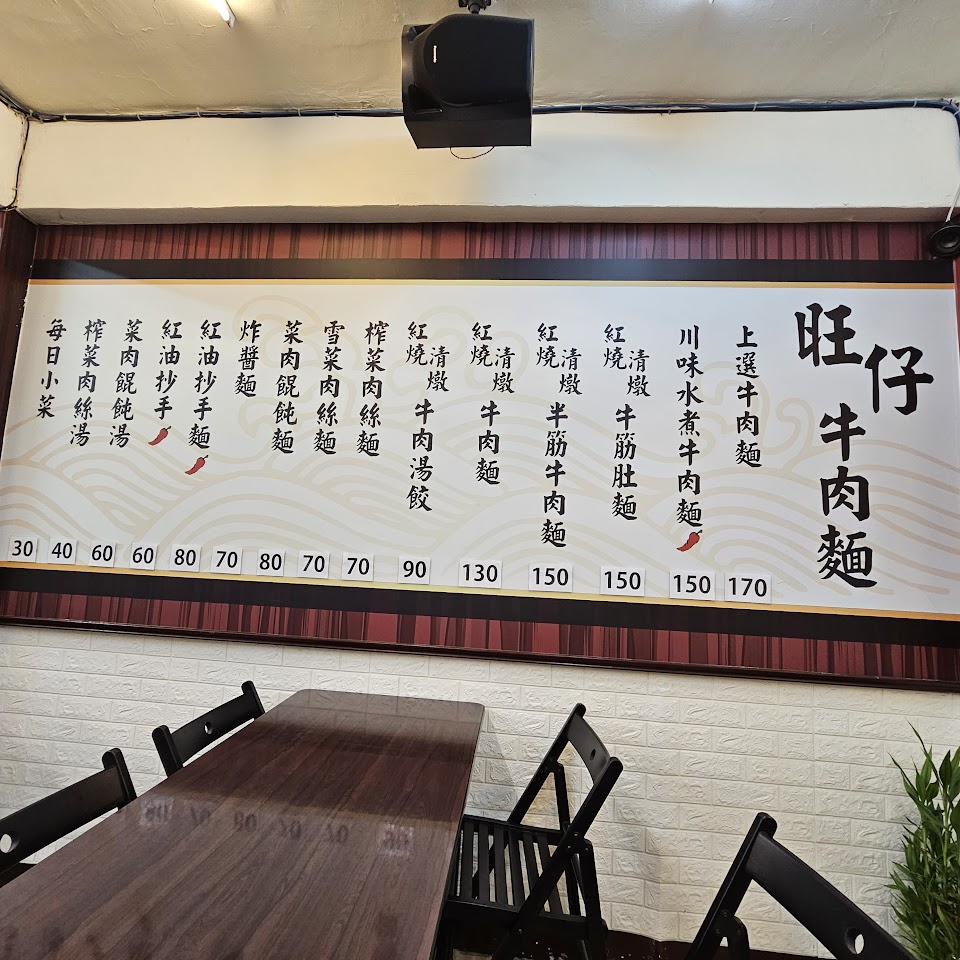 旺仔牛肉麵
上選牛肉麵
170
川味水煮牛肉麵
150
紅燒 清燉 牛筋肚麵
150
紅燒 清燉 半筋牛肉麵
150
紅燒 清燉 牛肉麵
130
紅燒 清燉 牛肉湯餃
90
榨菜肉絲麵
70
雪菜肉絲麵
70
菜肉餛飩麵
80
炸醬麵
70
紅油抄手麵
80
紅油抄手
60
菜肉餛飩湯
60
榨菜肉絲湯
40
每日小菜
30